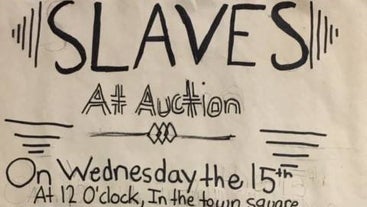 SLAVES
At Auction
On Wednesday the 15th
At 12 O'clock, In the town square